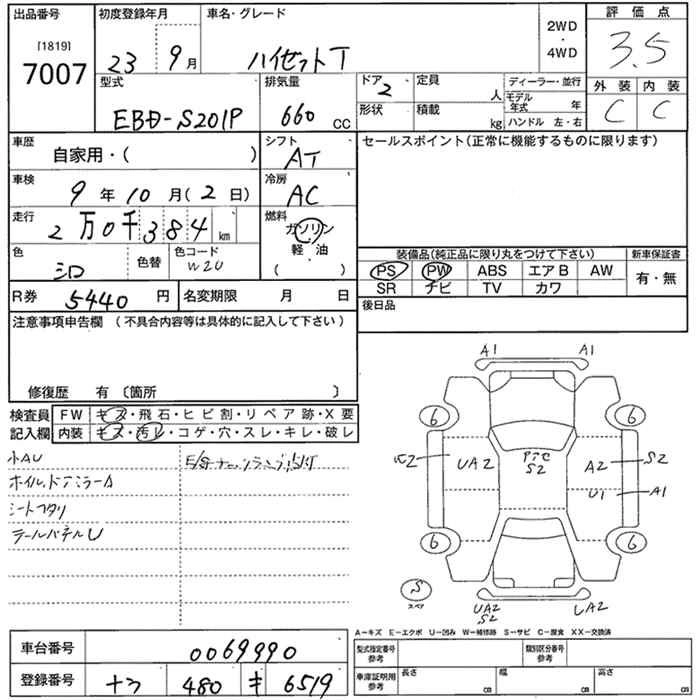 出品番号
[1819]
7007
初度登録年月
23 9月
車名・グレード
ハイゼットT
2WD
・
4WD
評価点
3.5
型式
EBD-S201P
排気量
660 CC
ドア
2
定員
人
ディーラー・並行
モデル年式 年
形状
積載
kg
ハンドル 左・右
外装
C
内装
C
車歴
自家用・( )
シフト
AT
セールスポイント(正常に機能するものに限ります)
車検
9年10月(2日)
冷房
AC
走行
2万0千384km
燃料
ガソリン
軽・油
( )
色
シロ
色替
色コード
W20
装備品(純正品に限り丸をつけて下さい)
新車保証書
PS PW ABS エアB AW
SR ナビ TV カワ
有・無
R券
5440円
名変期限 月 日
後日品
注意事項申告欄 (不具合内容等は具体的に記入して下さい)
修復歴 有〔箇所 〕
検査員
記入欄
FW キズ・飛石・ヒビ割・リペア跡・X要
内装 キズ・汚レ・コゲ・穴・スレ・キレ・破レ
小AU
ホイル、ドアミラーA
シートフタリ
テールパネルU
A1 A1
6 6
UA2 S2 A2 S2
U1 A1
6 6
S
スペア
UA2
S2
UA2
A-キズ E-エクボ U-凹み W-補修跡 S-サビ C-腐食 XX-交換済
車台番号
0069990
登録番号
480 キ 6519
型式指定番号
参考
類別区分番号
参考
車庫証明用
参考
長さ cm
幅 cm
高さ cm